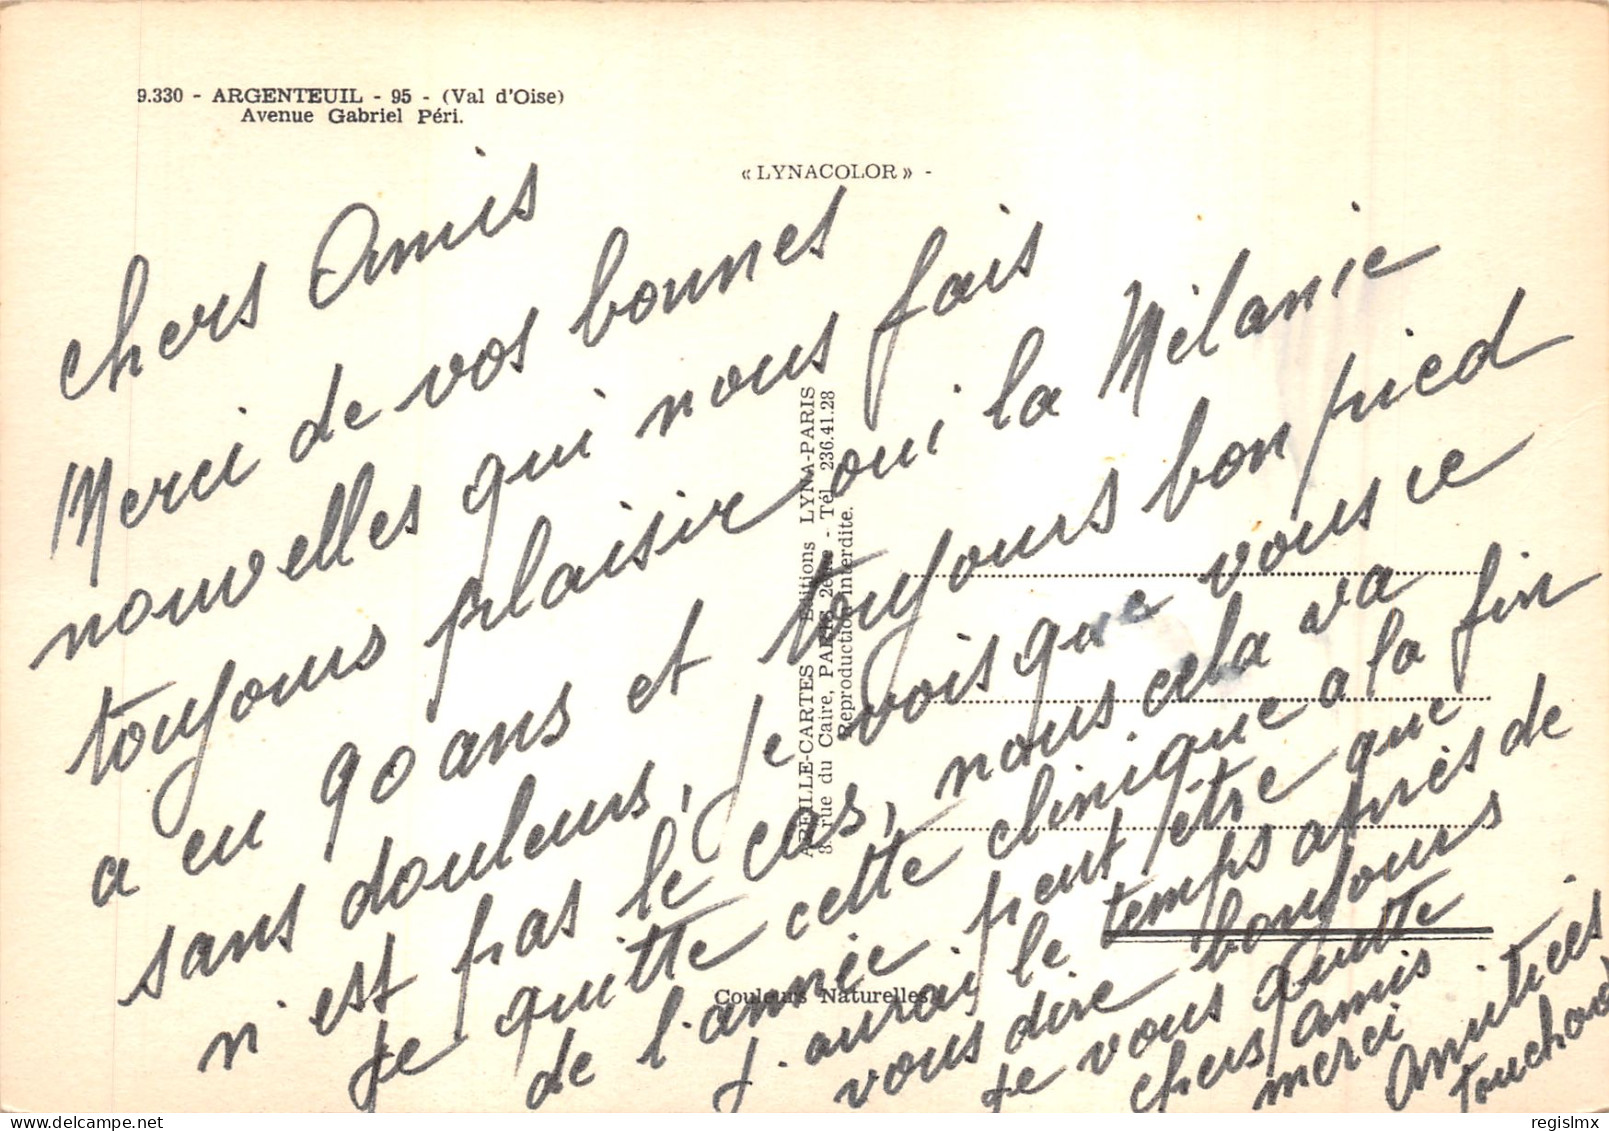 9.330 - ARGENTEUIL - 95 - (Val d'Oise)
Avenue Gabriel Péri.
« LYNACOLOR » -
ABEILLE-CARTES Editions LYNA-PARIS
8, rue du Caire, PARIS 2ème - Tél. 236.41.28
Reproduction interdite.
Couleurs Naturelles
chers Amis
Merci de vos bonnes
nouvelles qui nous fais
toujours plaisir oui la Mélanie
a eu 90 ans et toujours bon pied
sans douleurs, je vois que vous ce
n'est pas le cas, nous cela va
Je quitte cette clinique a la fin
de l'année peut être que
J'aurai le temps après de
vous dire bonjours
Je vous quitte
chers amis
merci
Amitiés
delcampe.net
regislmx